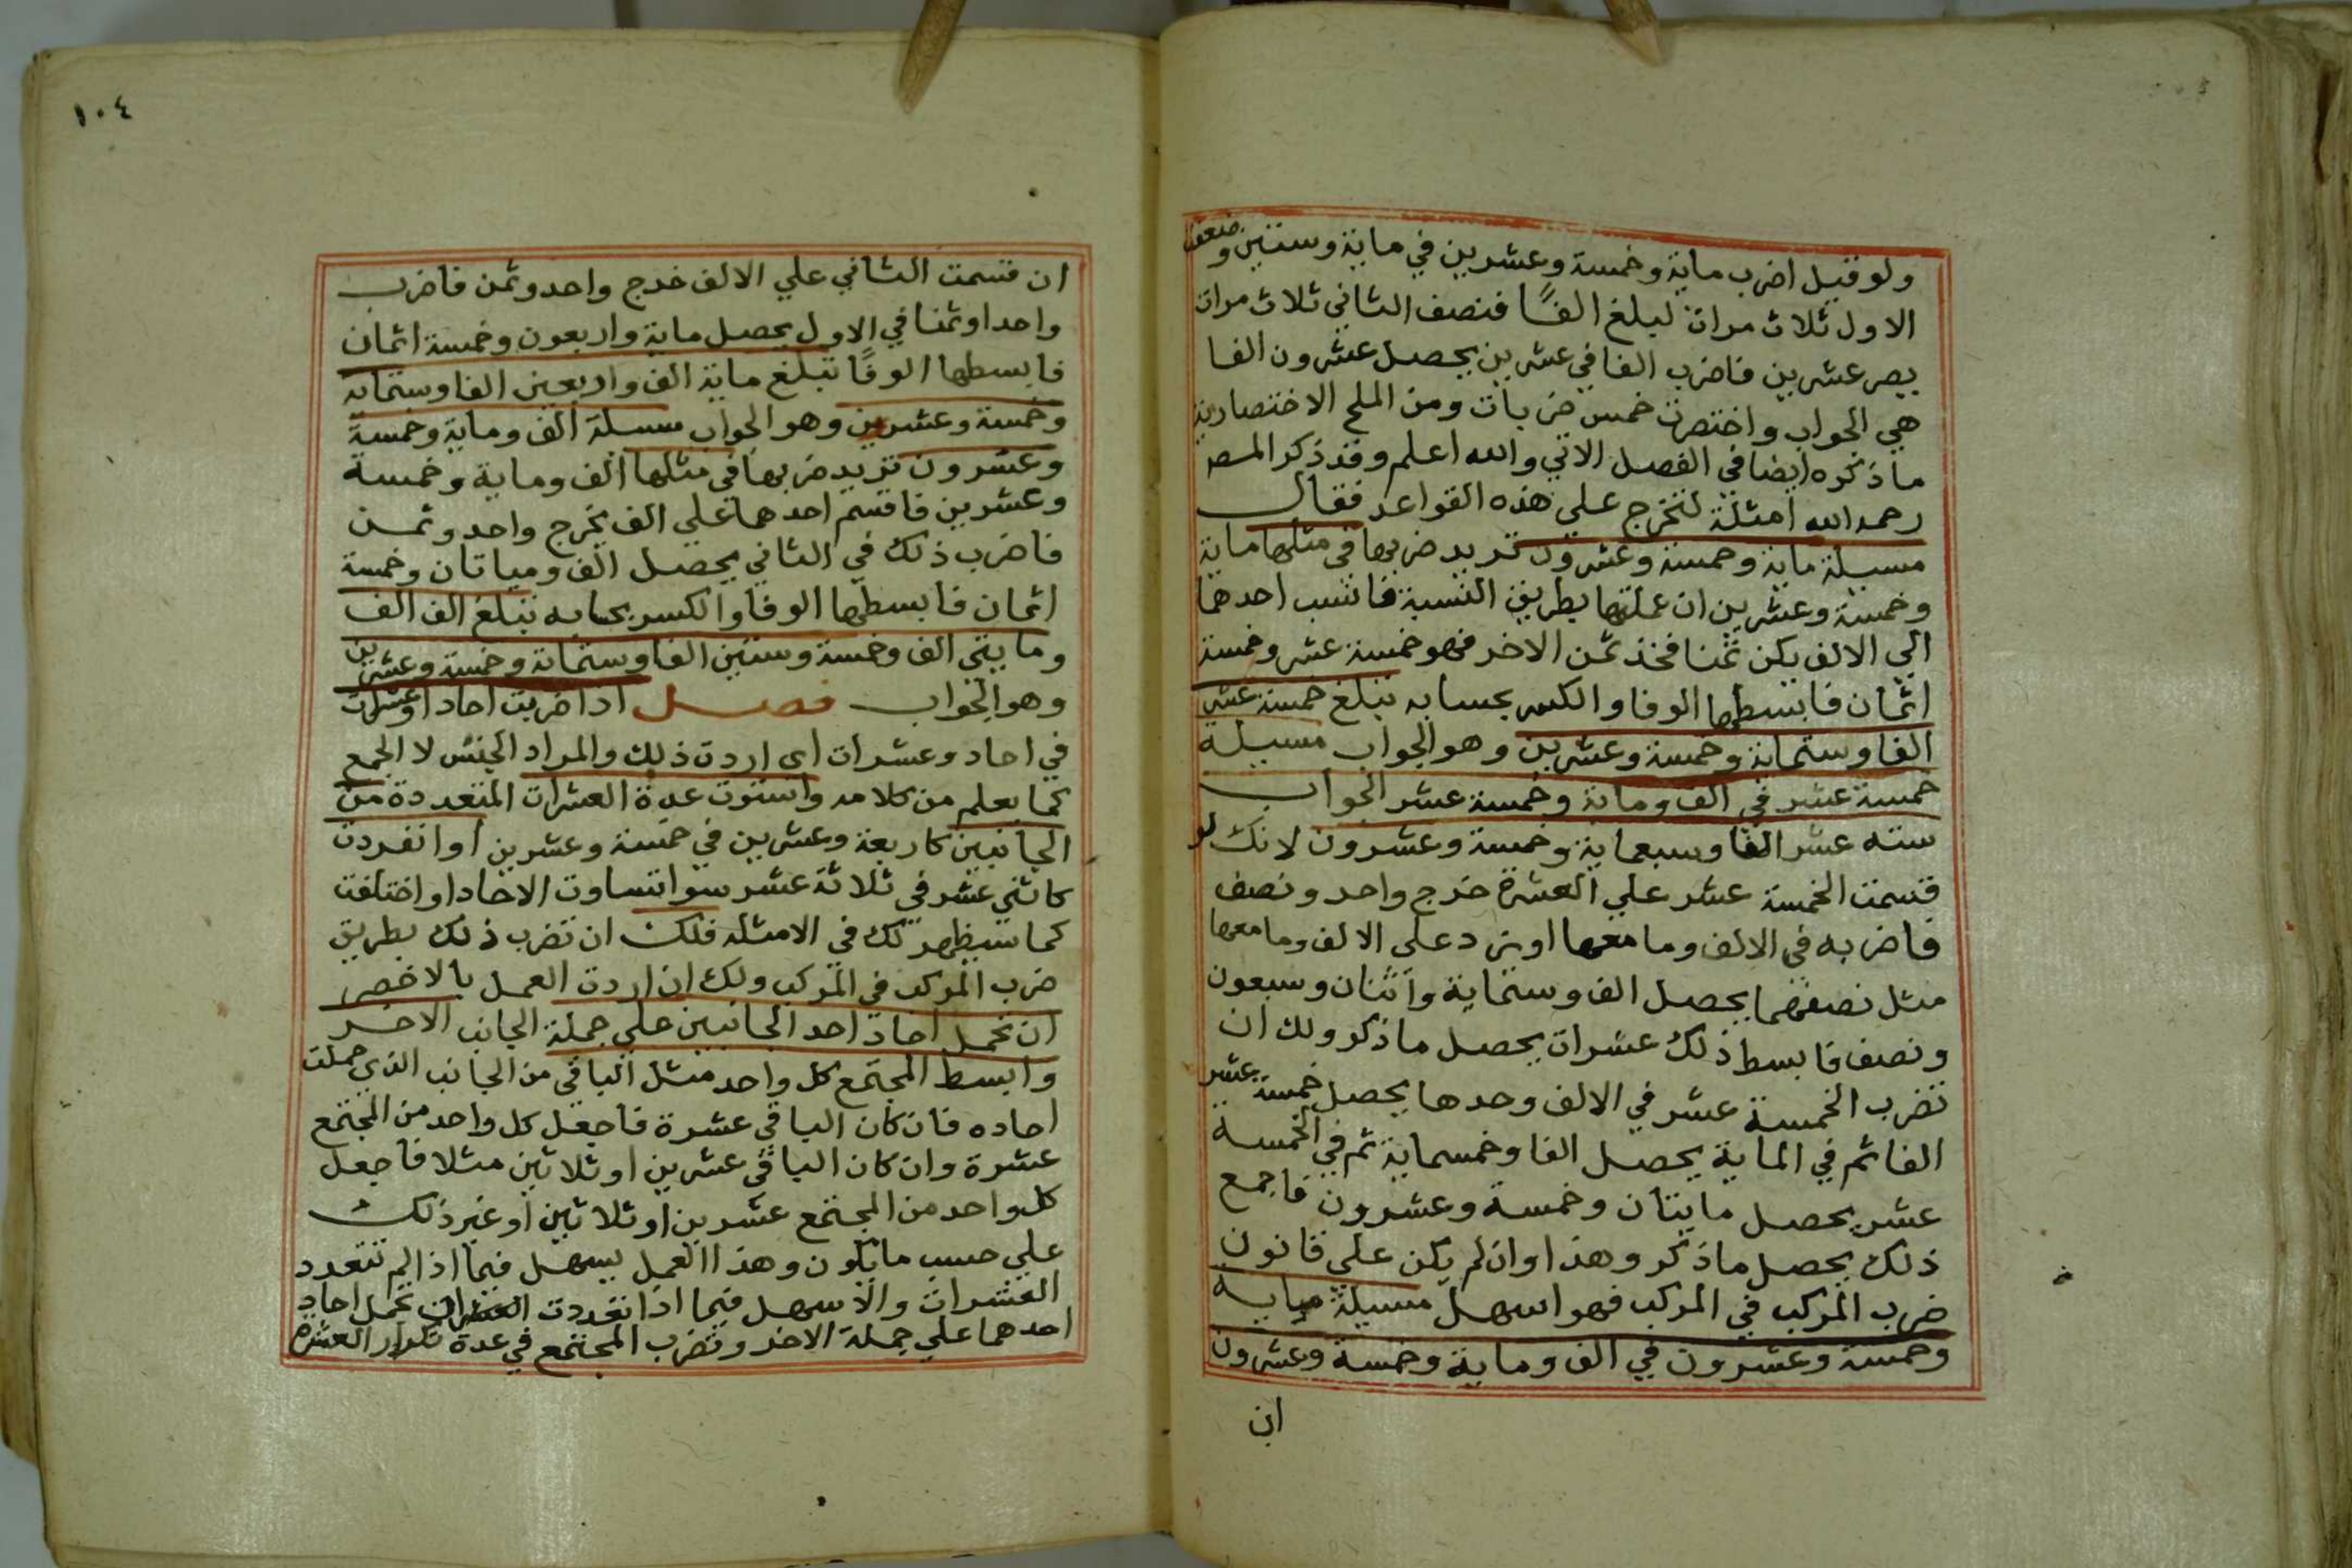 ولو قيل اضرب ماية وخمسة وعشرين في ماية وستين وضعف
الاول ثلاث مرات ليبلغ الفًا فنصف الثاني ثلاث مرات
يصر عشرين فاضرب الفا في عشرين يحصل عشرون الفا
هي الجواب واختصرت خمس ضربات ومن الملح الاختصارية
ما ذكره ايضا في الفصل الاتي والله اعلم وقد ذكر المص
رحمه الله امثلة لتخرج علي هذه القواعد فقال
مسيلة ماية وخمسة وعشرون تريد ضربها في مثلها ماية
وخمسة وعشرين ان عملتها بطريق النسبة فانسب احدهما
الي الالف يكن ثمنا فخذ ثمن الاخر فهو خمسة عشر وخمسة
اثمان فابسطها الوفا والكسر بحسابه تبلغ خمسة عشر
الفا وستماية وخمسة وعشرين وهو الجواب مسيلة
خمسة عشر في الف وماية وخمسة عشر الجواب
سته عشر الفا وسبعماية وخمسة وعشرون لانك لو
قسمت الخمسة عشر علي العشرة خرج واحد ونصف
فاضربه في الالف وما معها او زد علي الالف وما معها
مثل نصفهما يحصل الف وستماية واثنان وسبعون
ونصف فابسط ذلك عشرات يحصل ما ذكر ولك ان
تضرب الخمسة عشر في الالف وحدها يحصل خمسة عشر
الفا ثم في الماية يحصل الفا وخمسماية ثم في الخمسة
عشر يحصل مايتان وخمسة وعشرون فاجمع
ذلك يحصل ما ذكر وهذا وان لم يكن علي قانون
ضرب المركب في المركب فهو اسهل مسيلة ماية
وخمسة وعشرون في الف وماية وخمسة وعشرون
ان
١٠٤
ان قسمت الثاني علي الالف خرج واحد وثمن فاضرب
واحدا وثمنا في الاول يحصل ماية واربعون وخمسة اثمان
فابسطها الوفًا تبلغ ماية الف واربعين الفا وستماية
وخمسة وعشرين وهو الجواب مسيلة الف وماية وخمسة
وعشرون تريد ضربها في مثلها الف وماية وخمسة
وعشرين فاقسم احدهما علي الف يخرج واحد وثمن
فاضرب ذلك في الثاني يحصل الف ومياتان وخمسة
اثمان فابسطها الوفا والكسر بحسابه تبلغ الف الف
ومايتي الف وخمسة وستين الفا وستماية وخمسة وعشرين
وهو الجواب فصل اذا ضربت احاد او عشرات
في احاد وعشرات اي اردت ذلك والمراد الجنس لا الجمع
كما يعلم من كلامه واستوت عدة العشرات المتعددة من
الجانبين كاربعة وعشرين في خمسة وعشرين او انفردت
كاثني عشر في ثلاثة عشر سوا تساوت الاحاد او اختلفت
كما سيظهر لك في الامثلة فلك ان تضرب ذلك بطريق
ضرب المركب في المركب ولك ان اردت العمل بالاخصر
ان تحمل احاد احد الجانبين علي جملة الجانب الاخر
وابسط المجتمع كل واحد مثل الباقي من الجانب الذي حملت
احاده فان كان الباقي عشرة فاجعل كل واحد من المجتمع
عشرة وان كان الباقي عشرين او ثلاثين مثلا فاجعل
كل واحد من المجتمع عشرين او ثلاثين او غير ذلك
علي حسب ما يكون وهذا العمل يسهل فيما اذا لم تتعدد
العشرات والاسهل فيما اذا تعددت العشرات تحمل احاد
احدهما علي جملة الاخر وتضرب المجتمع في عدة تكرار العشرة